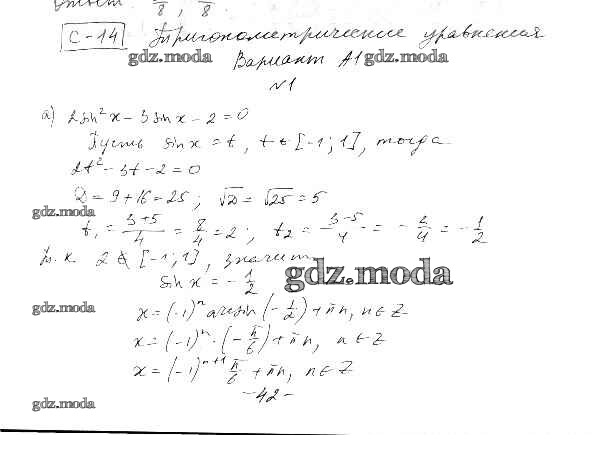 Ответ: π/8, π/8.
С-14 Тригонометрические уравнения
gdz.moda Вариант А1 gdz.moda
№1
а) 2sin²x - 3sinx - 2 = 0
Пусть sinx = t, t ∈ [-1; 1], тогда
2t² - 3t - 2 = 0
D = 9 + 16 = 25; √D = √25 = 5
gdz.moda
t₁ = (3+5)/4 = 8/4 = 2; t₂ = (3-5)/4 = -2/4 = -1/2
т.к. 2 ∉ [-1; 1], значит
gdz.moda
sin x = -1/2
gdz.moda
x = (-1)ⁿ arcsin(-1/2) + πn, n ∈ Z
x = (-1)ⁿ · (-π/6) + πn, n ∈ Z
x = (-1)ⁿ⁺¹ π/6 + πn, n ∈ Z
-42-
gdz.moda